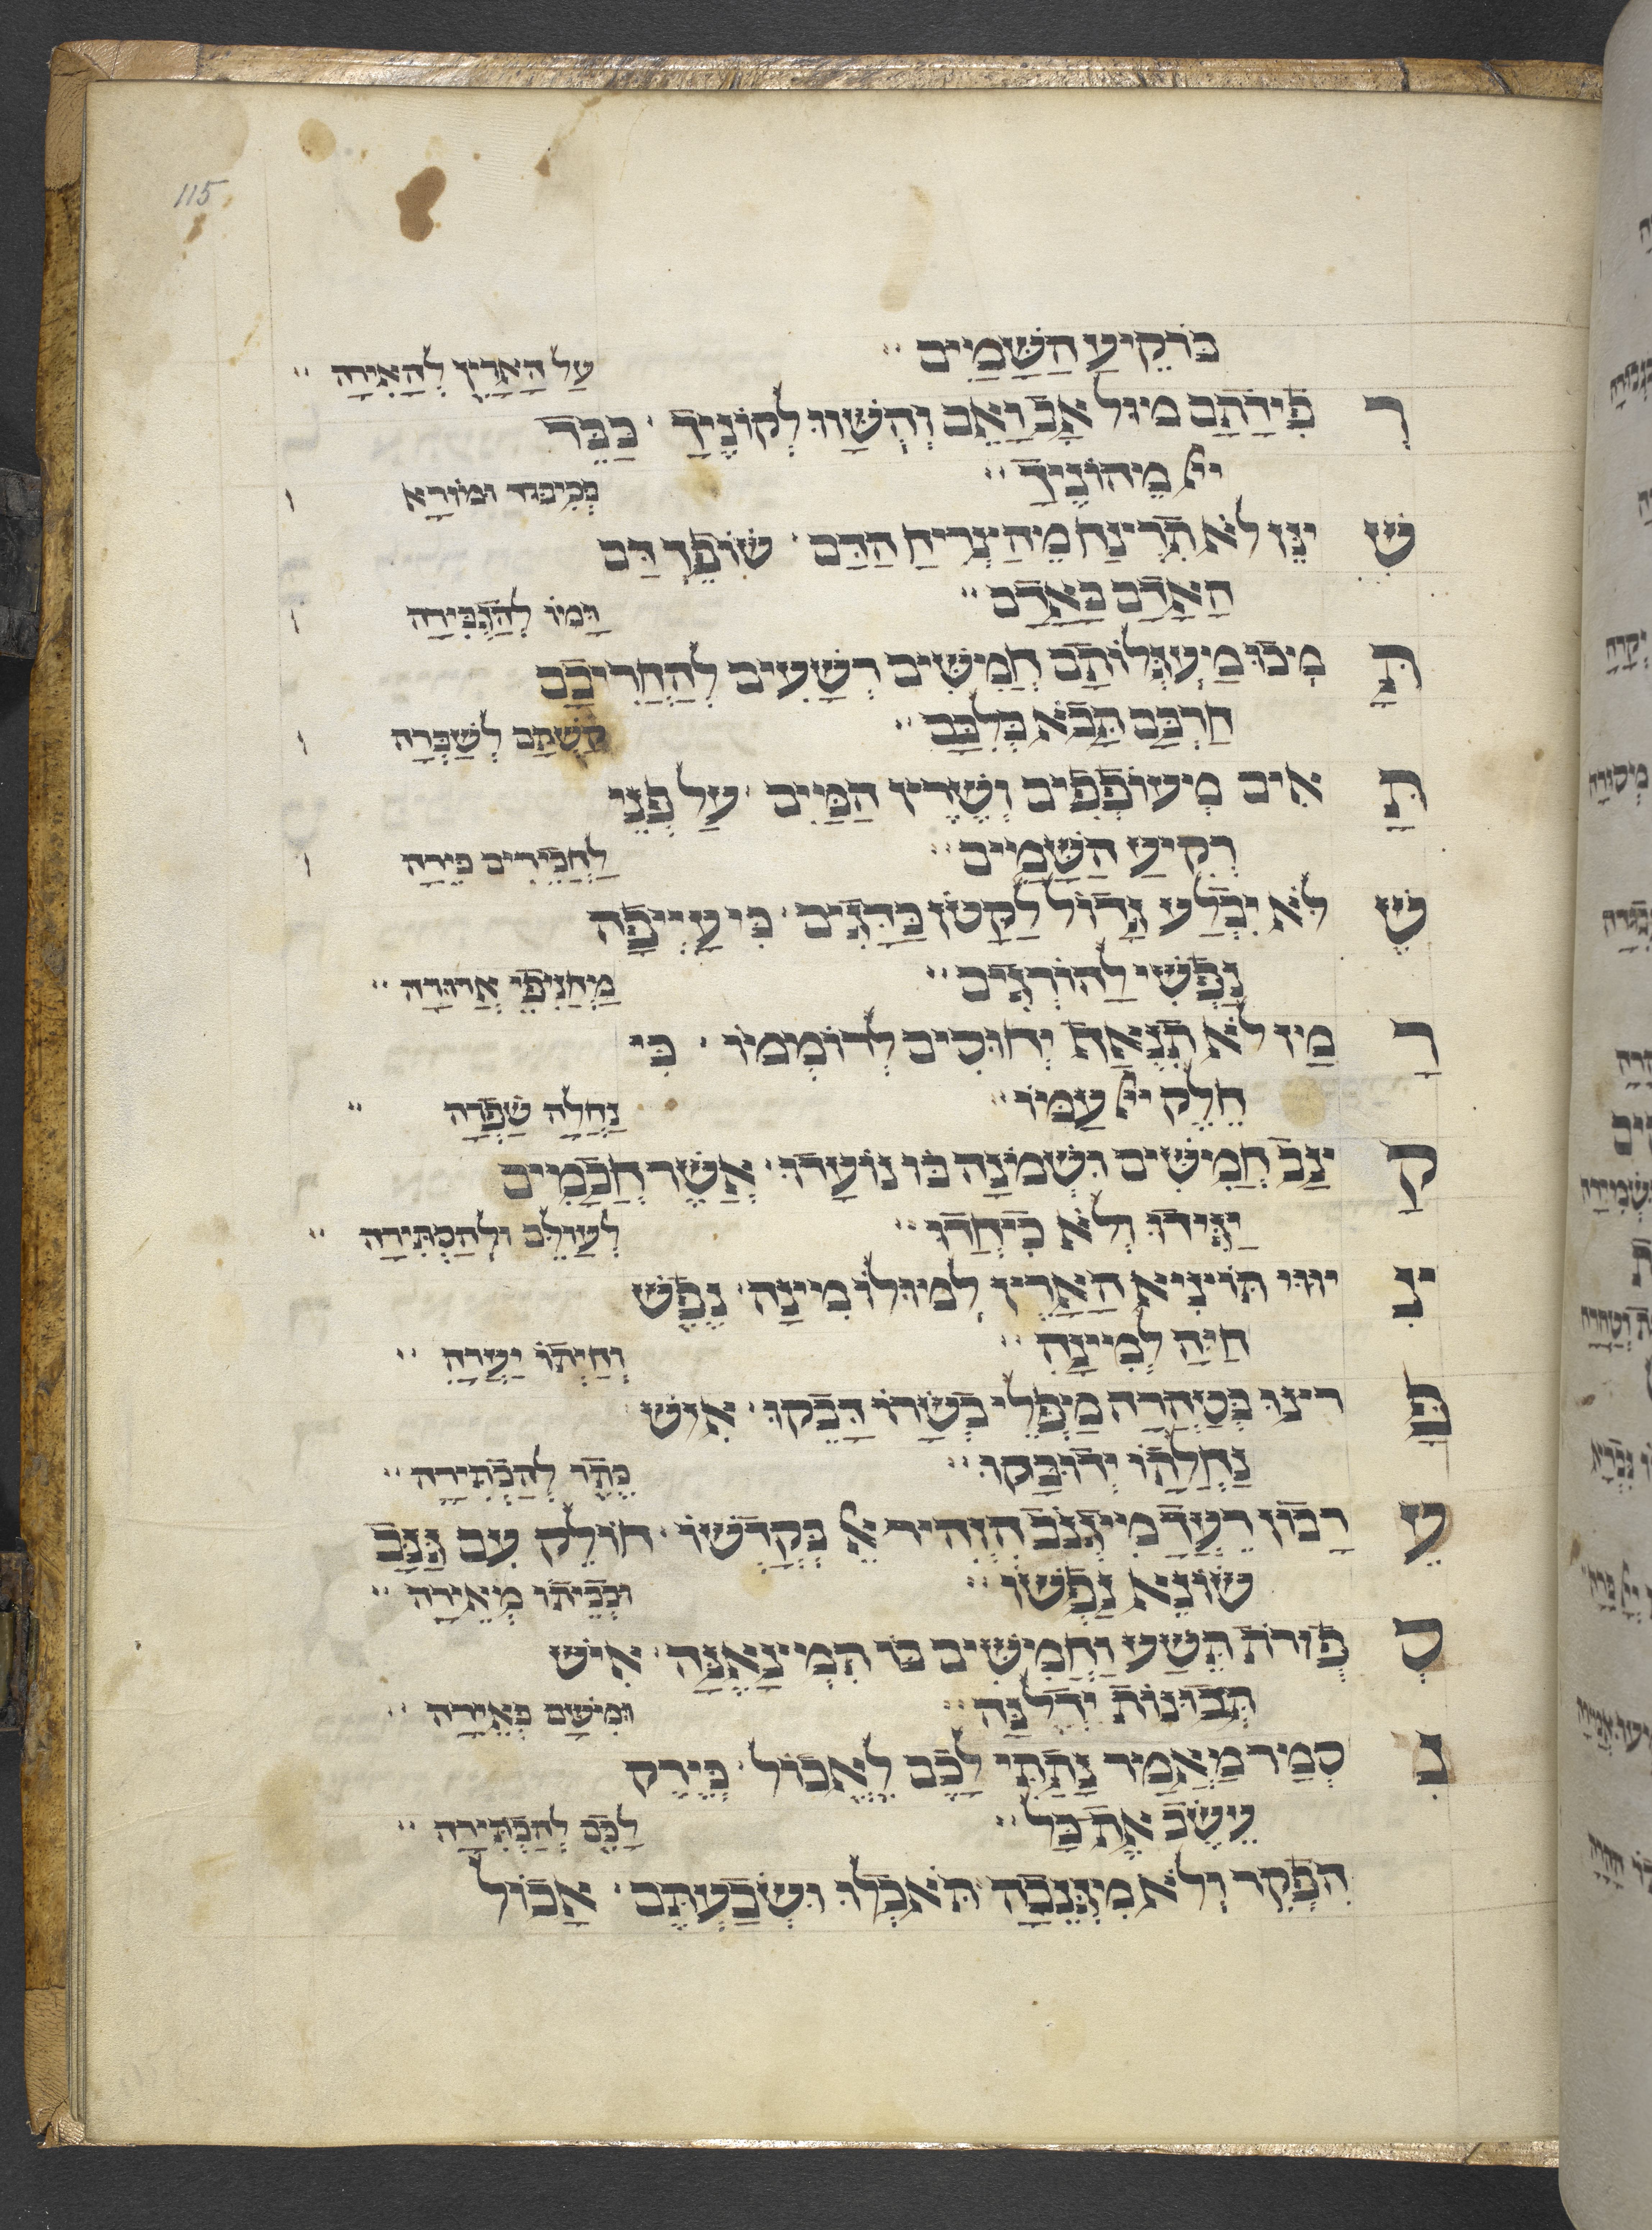 115
בִּרְקִיעַ הַשָּׁמַיִם
עַל הָאָרֶץ לְהָאִירָה
רְ פִידָתָם מול אָב וָאֵם וְהֻשְׁווּ לְקוֹנֶיךָ כַּבֵּד
ייָ מֵהוֹנֶיךָ
בְּכִיבוּד ומוֹרָא
שִׁ ינֵּן לֹא תִרְצַח מֵהַצְרִיחַ הַדָּם שׁוֹפֵךְ דַּם
הָאָדָם בָּאָדָם
דָּמוֹ לְהַנְגִּירָה
תָּ מְכוּ מַעְגְּלוֹתָם חֲמִשִּׁים רְשָׁעִים לְהַחֲרִיבָם
חַרְבָּם תָּבֹא בְלִבָּם
קַשְׁתָם לְשַׁבְּרָה
תָּ אִים מְעוֹפְפִים וְשֶׁרֶץ הַמַּיִם עַל פְּנֵי
רְקִיעַ הַשָּׁמַיִם
לַחֲבֵירִים פֵּירָה
שֶׁ לֹּא יִבְלַע גָּדוֹל לַקָּטֹן כַּדָּגִים כִּי עָיְיפָה
נַפְשִׁי לְהוֹרְגִים
מֵחֲנֵיפֵי אֲרוּרָה
רָ מַז לֹא תִנְאָף יְחוּמִים לְרוֹמְמוֹ כִּי
חֵלֶק ייָ עַמּוֹ
נַחֲלָה שָׁפְרָה
קָ ינַב חֲמִשִּׁים וּשְׁמֹנָה בּוֹ נוֹעָדוּ אֲשֶׁר חֲכָמִים
יַגִּידוּ וְלֹא כִיחֲדוּ
לְעַוְּלָם וּלְהַכְתִּירָה
צִ יוּוּי תּוֹצִיא הָאָרֶץ לְמוּלוֹ מִינָהּ נֶפֶשׁ
חַיָּה לְמִינָהּ
וְחַיְתוֹ יַעְרָה
פָּ רְצוּ בְטָהֳרָה מִפְּלֵי בְשָׂרוֹ דָּבֵקוּ אִישׁ
נַחֲלָתוֹ יְדוּבָּקוּ
כֶּתֶר לְהַכְתִּירָה
עֵ רָבוֹן רֵעֲךָ מִיגְנֹב הִזְהִיר אֵל בְּקָדְשׁוֹ חוֹלֵק עִם גַּנָּב
שׂוֹנֵא נַפְשׁוֹ
וּבְבֵיתוֹ מְאֵירָה
סְ פוּרוֹת תֵּשַׁע וַחֲמִשִּׁים בּוֹ תִמְצָאֶנָּה אִישׁ
תְּבוּנוֹת יִדְלֶנָּה
וּמִשָּׁם כְּאֵירָה
נִ סְמַךְ מַאֲמַר נָתַתִּי לָכֶם לֶאֱכוֹל כְּיֶרֶק
עֵשֶׂב אֶת כֹּל
לָכֶם לְהַכְתִּירָה
הֶפְקֵר וְלֹא מִגְּנֵבָה תֹּאכְלוּ וּשְׂבַעְתֶּם אָכוֹל